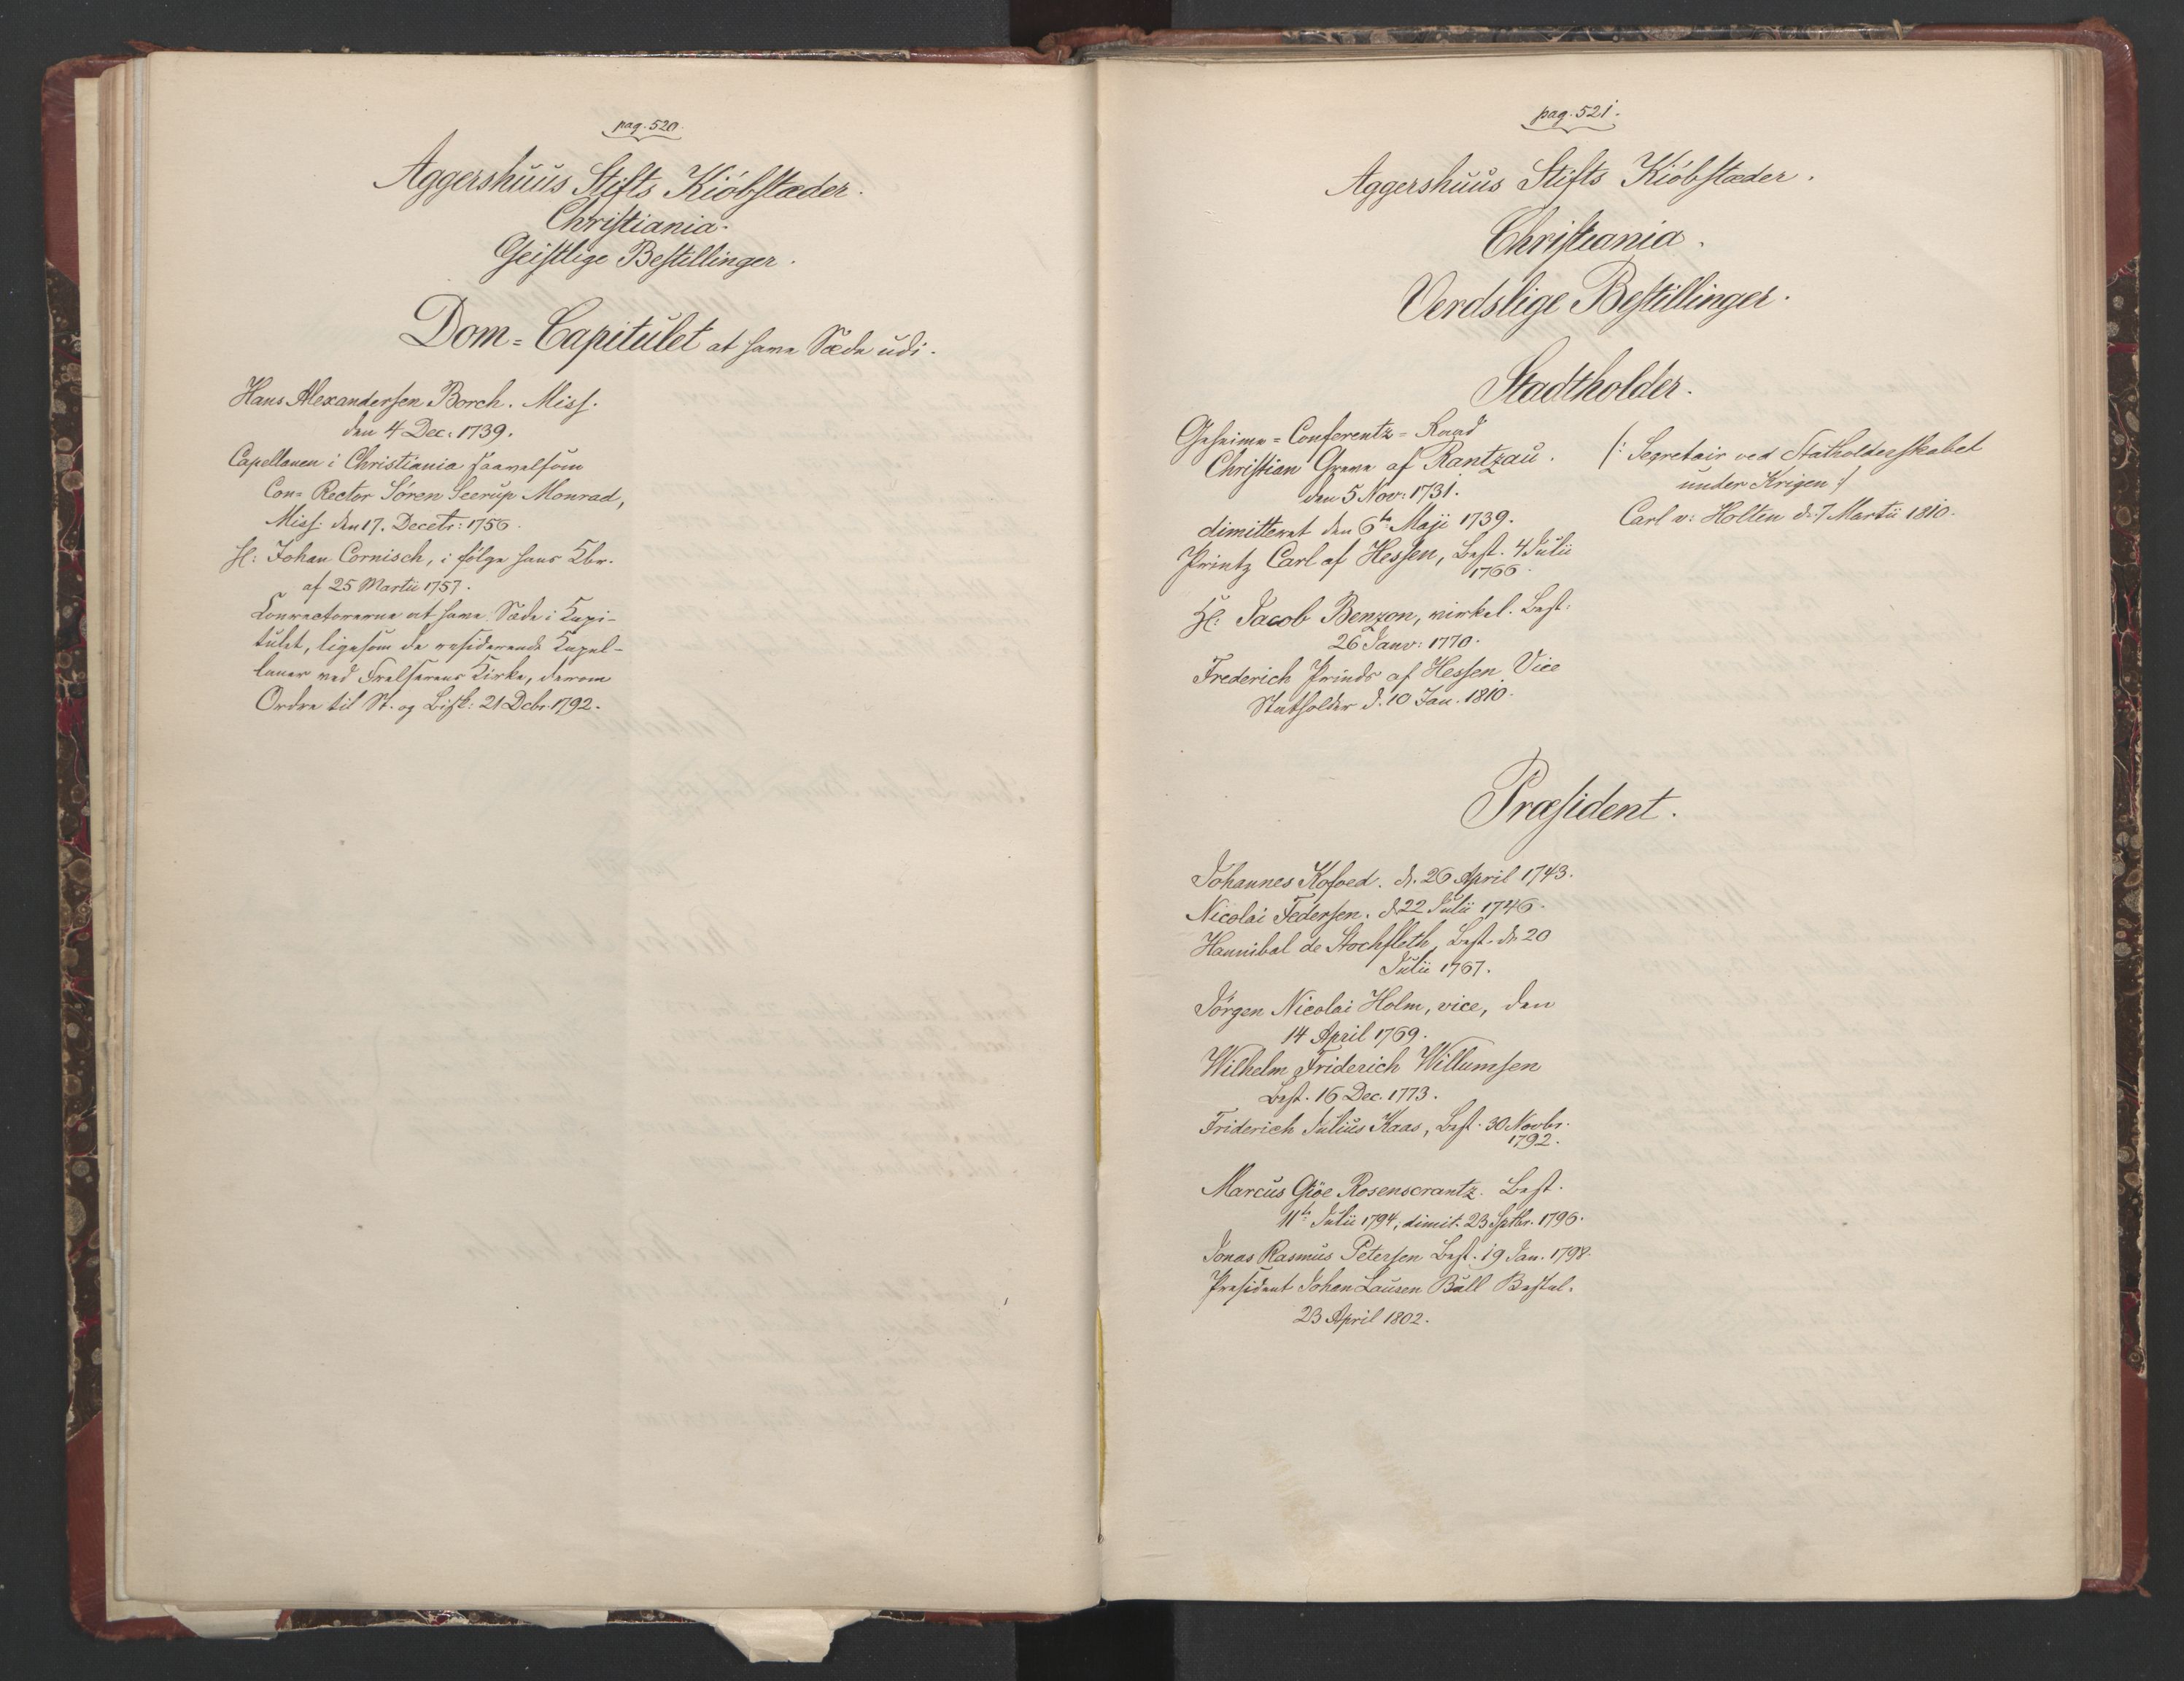 pag. 520.
Aggershuus Stifts Kiöbstæder.
Christiania.
Geistlige Bestillinger.
Dom=Capitulet at have Sæde udi.
Hans Alexandersen Borch. Miss.
den 4 Dec. 1739.
Capellanen i Christiania saavelsom
Con=Rector Sören Seerup Monrad,
Miss. den 17. Decebr: 1756.
H: Johan Cornisch, i følge hans Kbr.
af 25 Martii 1757.
Conrectorerne at have Sæde i Capi-
tulet, ligesom de residerende Capel-
laner ved Frelserens Kirke, derom
Ordre til St. og Bisk: 21 Dcbr. 1792.
pag. 521.
Aggershuus Stifts Kiöbstæder.
Christiania.
Verdslige Bestillinger.
Stadtholder.
Geheime=Conferentz=Raad
Christian Greve af Rantzau.
den 5 Nov: 1731.
dimitteret den 6te Maji 1739.
Printz Carl af Hessen, Best. 4 Julii
1766.
H: Jacob Benzon, virkel. Best:
26 Janv: 1770.
Frederich Prinds af Hessen Vice
Statholder d. 10 Jan. 1810.
(: Secretair ved Statholderskabet
under Krigen :)
Carl v: Holten d: 7 Martii 1810.
Præsident.
Johannes Kofoed. d. 26 April 1743.
Nicolai Federsen. d 22 Julii 1746.
Hannibal de Stochfleth, Best. d. 20
Julii 1767.
Jörgen Nicolai Holm, vice, den
14 April 1769.
Wilhelm Friderich Willumsen
Best. 16 Dec. 1773.
Friderich Julius Kaas, Best. 30 Novbr.
1792.
Marcus Giöe Rosenscrantz. Best.
11te Julii 1794, dimit. 23 Septbr. 1796.
Jonas Rasmus Petersen Best. 19 Jan. 1798.
Præsident Johan Lausen Bull Bestal.
23 April 1802.